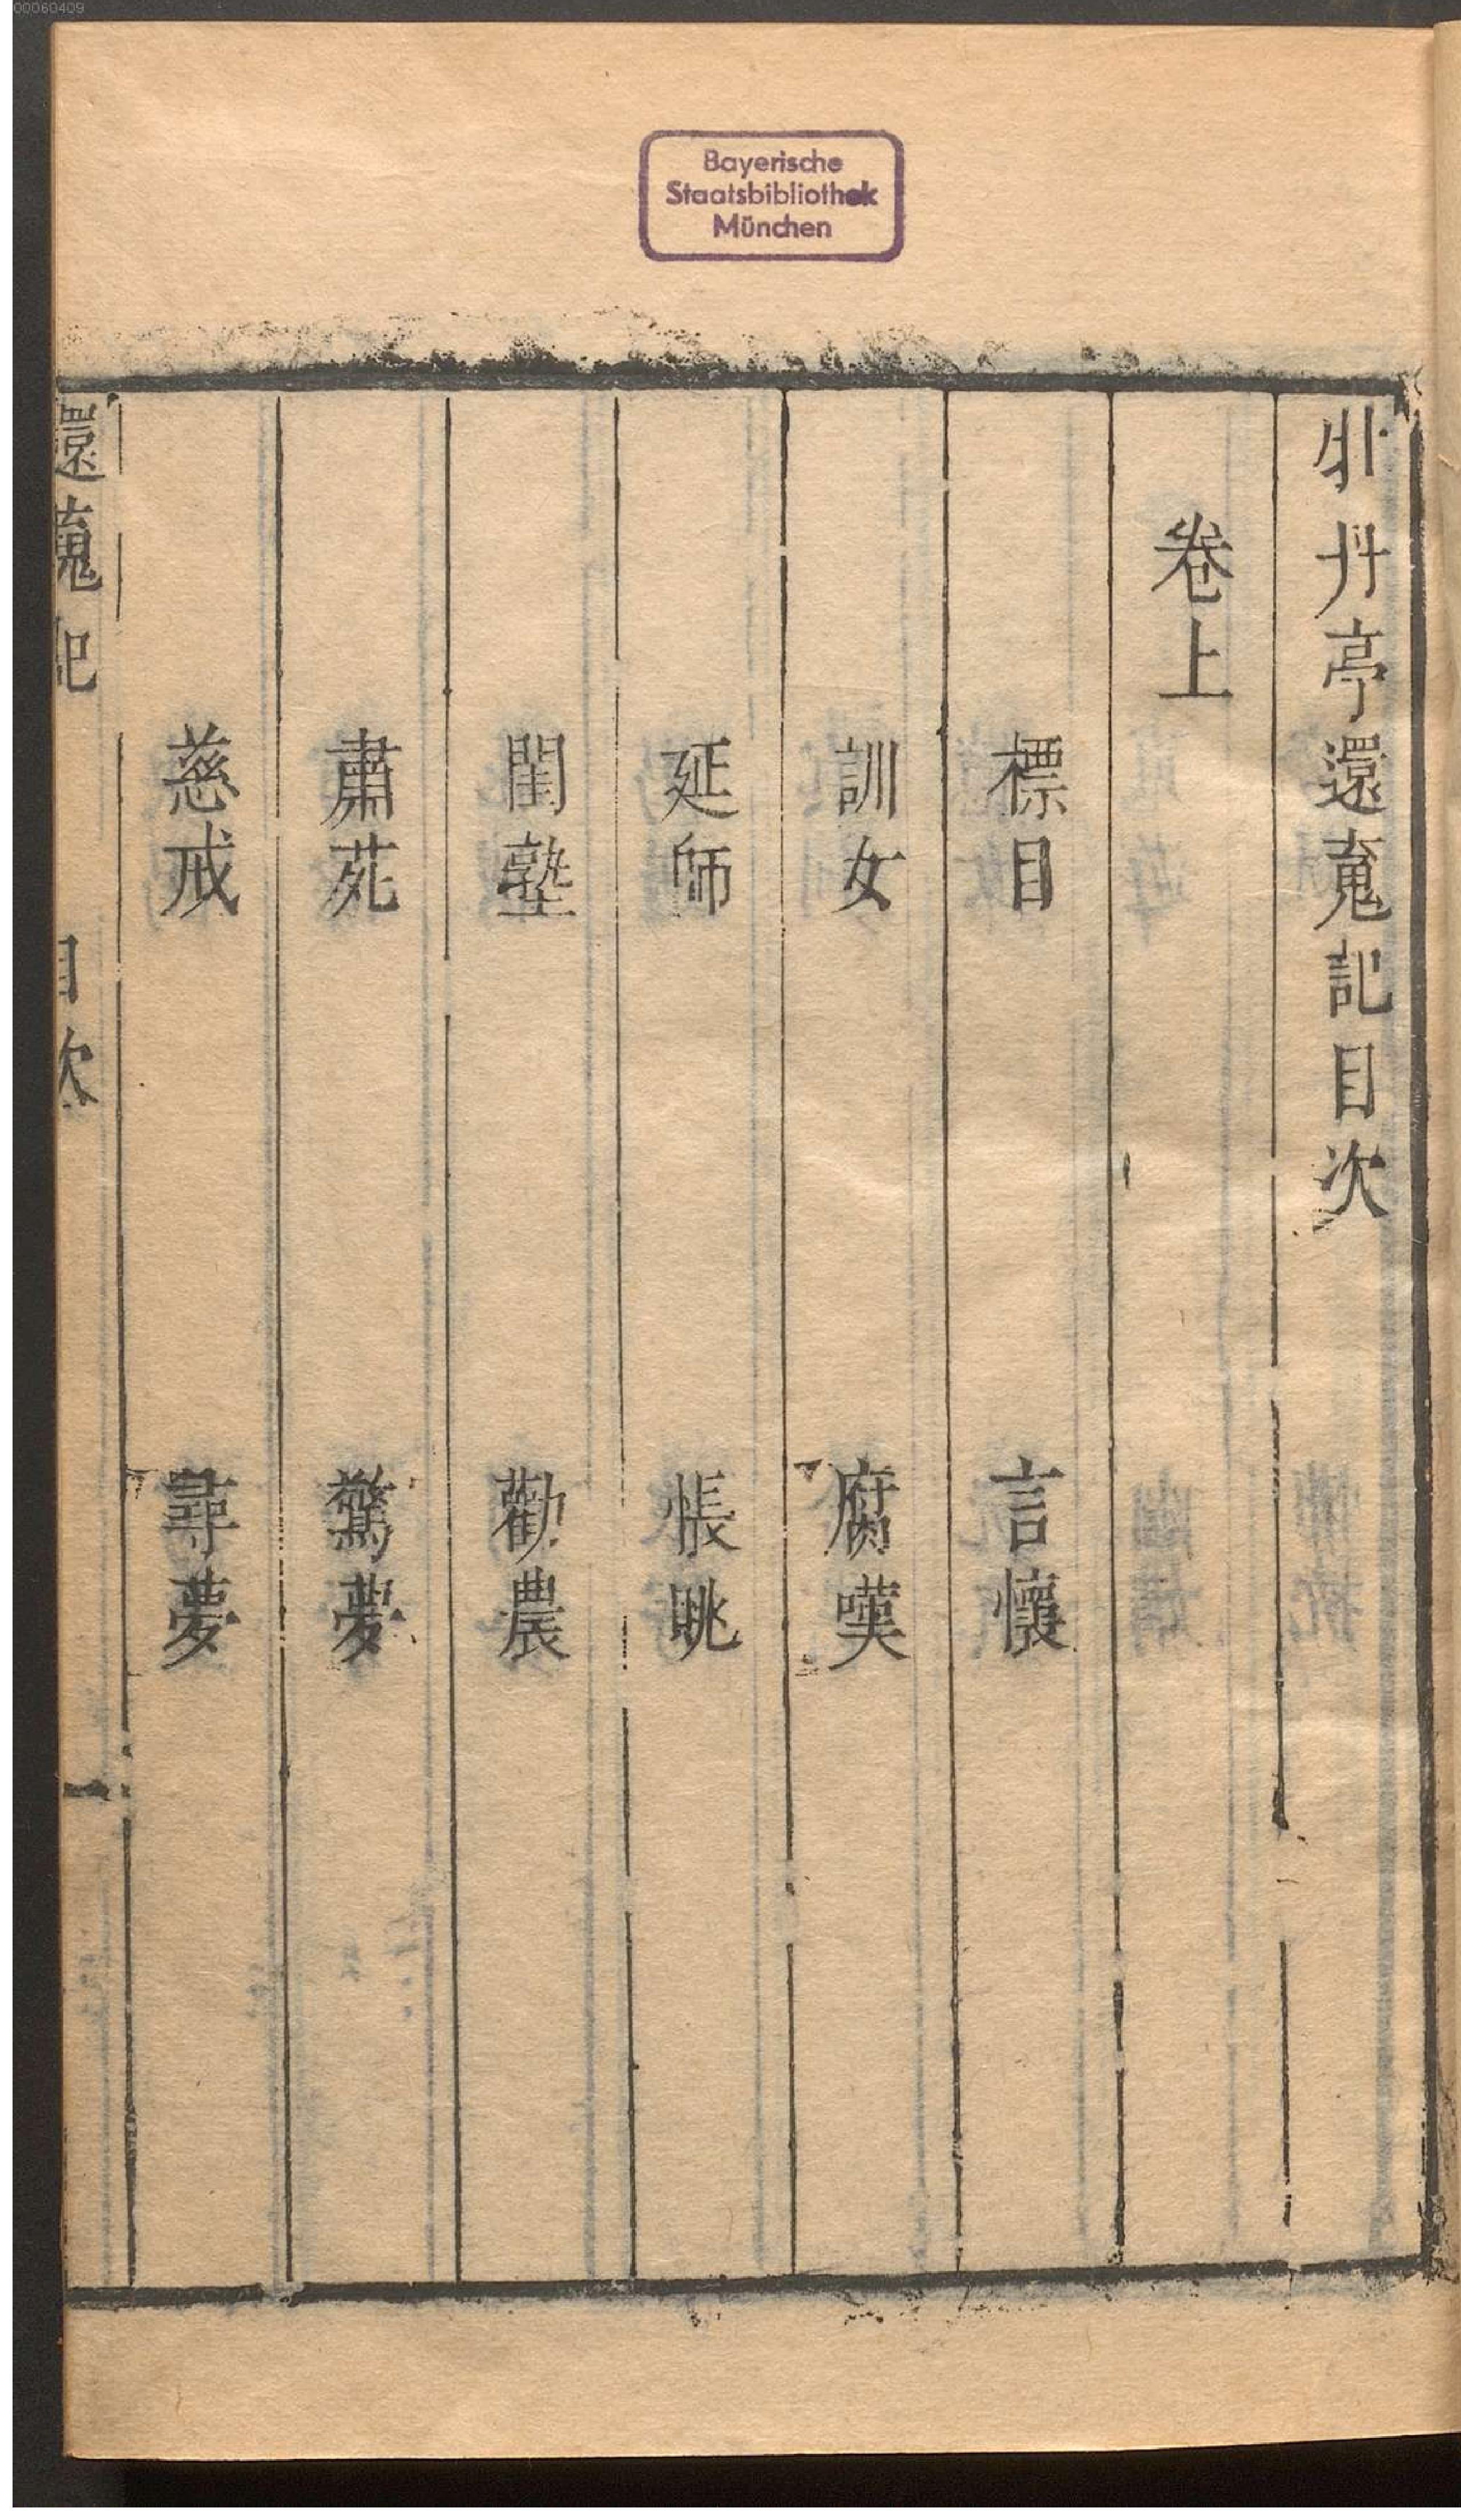 00060409
Bayerische
Staatsbibliothek
München
牡丹亭還䰟記目次
卷上
標目 言懷
訓女 腐嘆
延師 悵眺
閨塾 勸農
肅苑 驚夢
慈戒 尋夢
還䰟記 目次 一